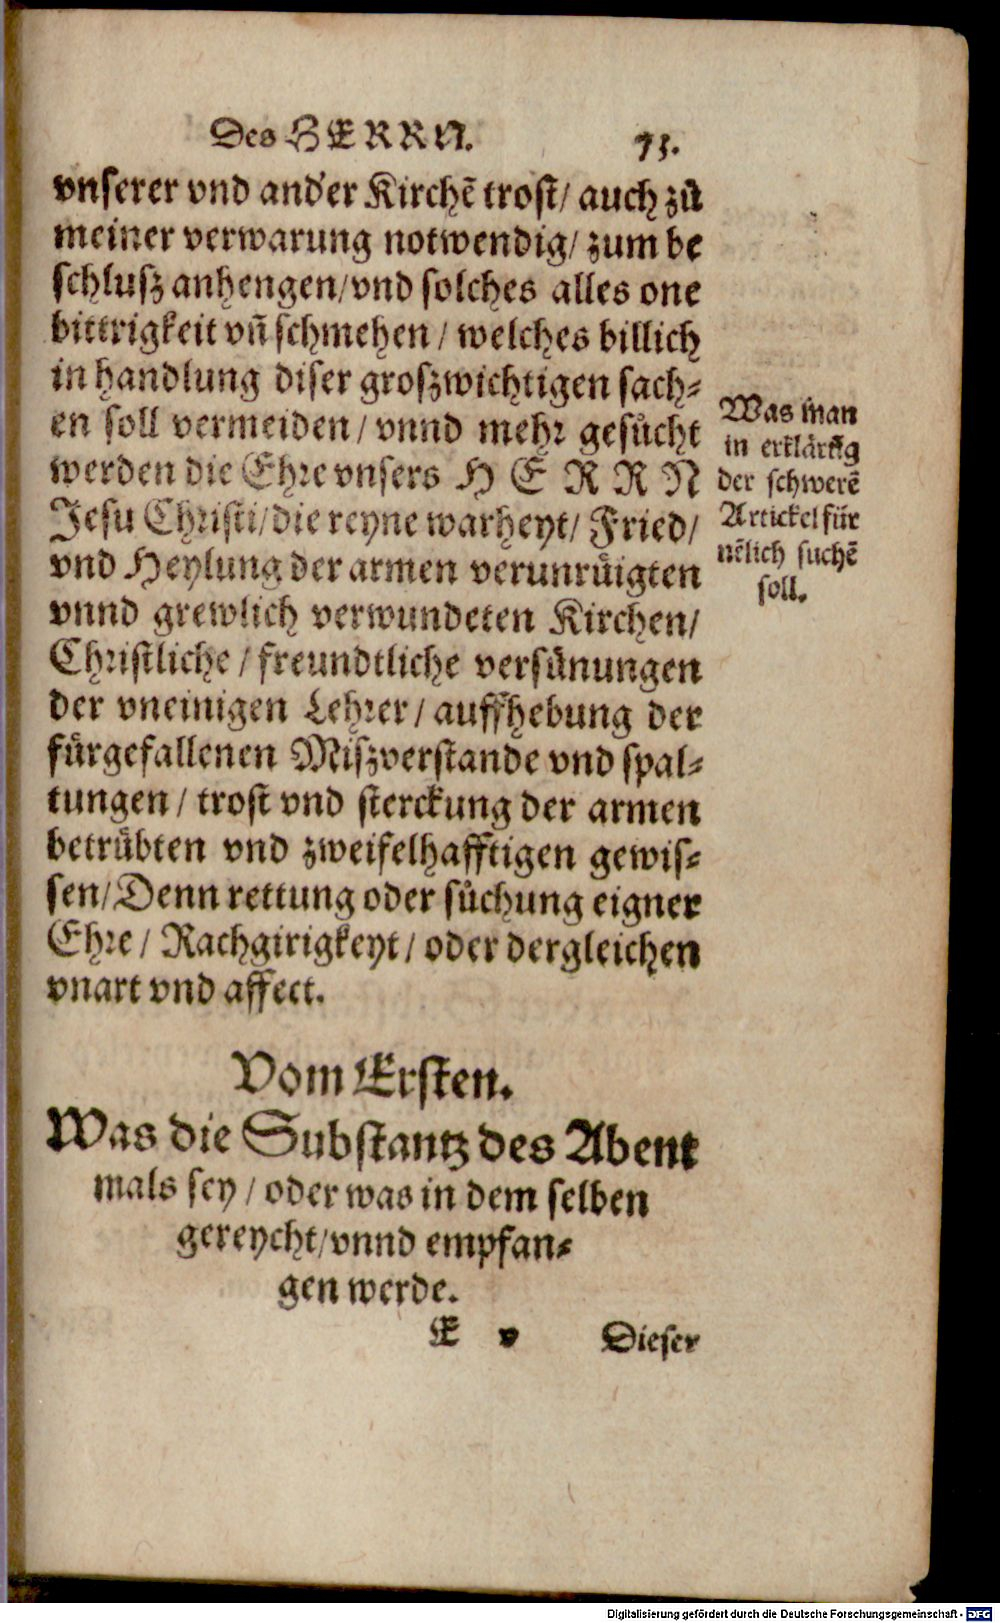 Des HERRN. 73.
vnserer vnd ander Kirchē trost/ auch zů
meiner verwarung notwendig/ zum be
schlusz anhengen/vnd solches alles one
bittrigkeit vn̄ schmehen / welches billich
in handlung diser groszwichtigen sach⸗
en soll vermeiden / vnnd mehr gesůcht
werden die Ehre vnsers H E R R N
Jesu Christi/die reyne warheyt/ Fried/
vnd Heylung der armen verunrůigten
vnnd grewlich verwundeten Kirchen/
Christliche / freundtliche versůnungen
der vneinigen Lehrer / auffhebung der
fürgefallenen Miszverstande vnd spal⸗
tungen / trost vnd sterckung der armen
betrübten vnd zweifelhafftigen gewis⸗
sen/ Denn rettung oder sůchung eigner
Ehre / Rachgirigkeyt / oder dergleichen
vnart vnd affect.
Was man
in erklärūg
der schwerē
Artickel für
nēlich suchē
soll.
Vom Ersten.
Was die Substantz des Abent
mals sey / oder was in dem selben
gereycht/vnnd empfan⸗
gen werde.
E v Dieser
Digitalisierung gefördert durch die Deutsche Forschungsgemeinschaft - DFG